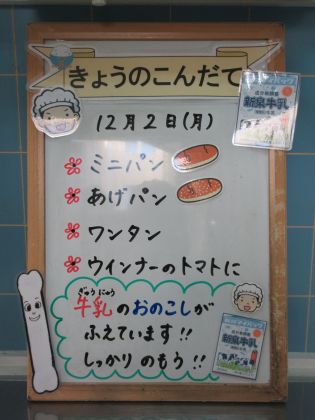 きょうのこんだて
12月2日(月)
ミニパン
あげパン
ワンタン
ウインナーのトマトに
ぎゅうにゅう
牛乳のおのこしが
ふえています!!
しっかりのもう!!
成分無調整
新泉牛乳
新泉牛乳